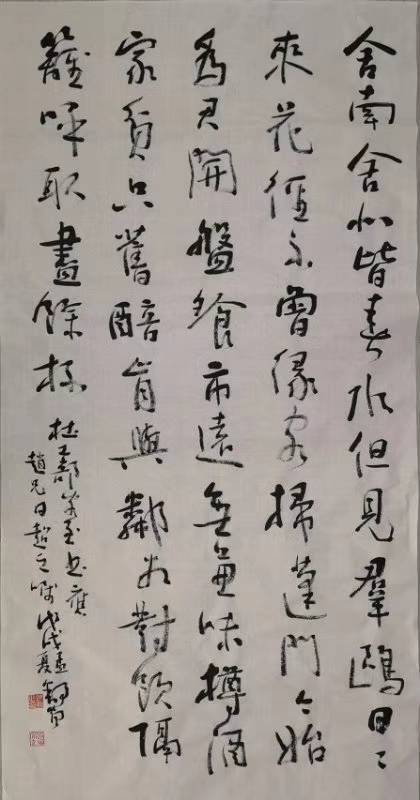 舍南舍北皆春水但見羣鷗日〻
來花徑不曾緣客掃蓬門今始
為君開盤飱市遠無兼味樽酒
家貧只舊醅肯與鄰相對飲隔
籬呼取盡餘杯
杜工部客至書應
趙兄日超之囑戊戌孟夏